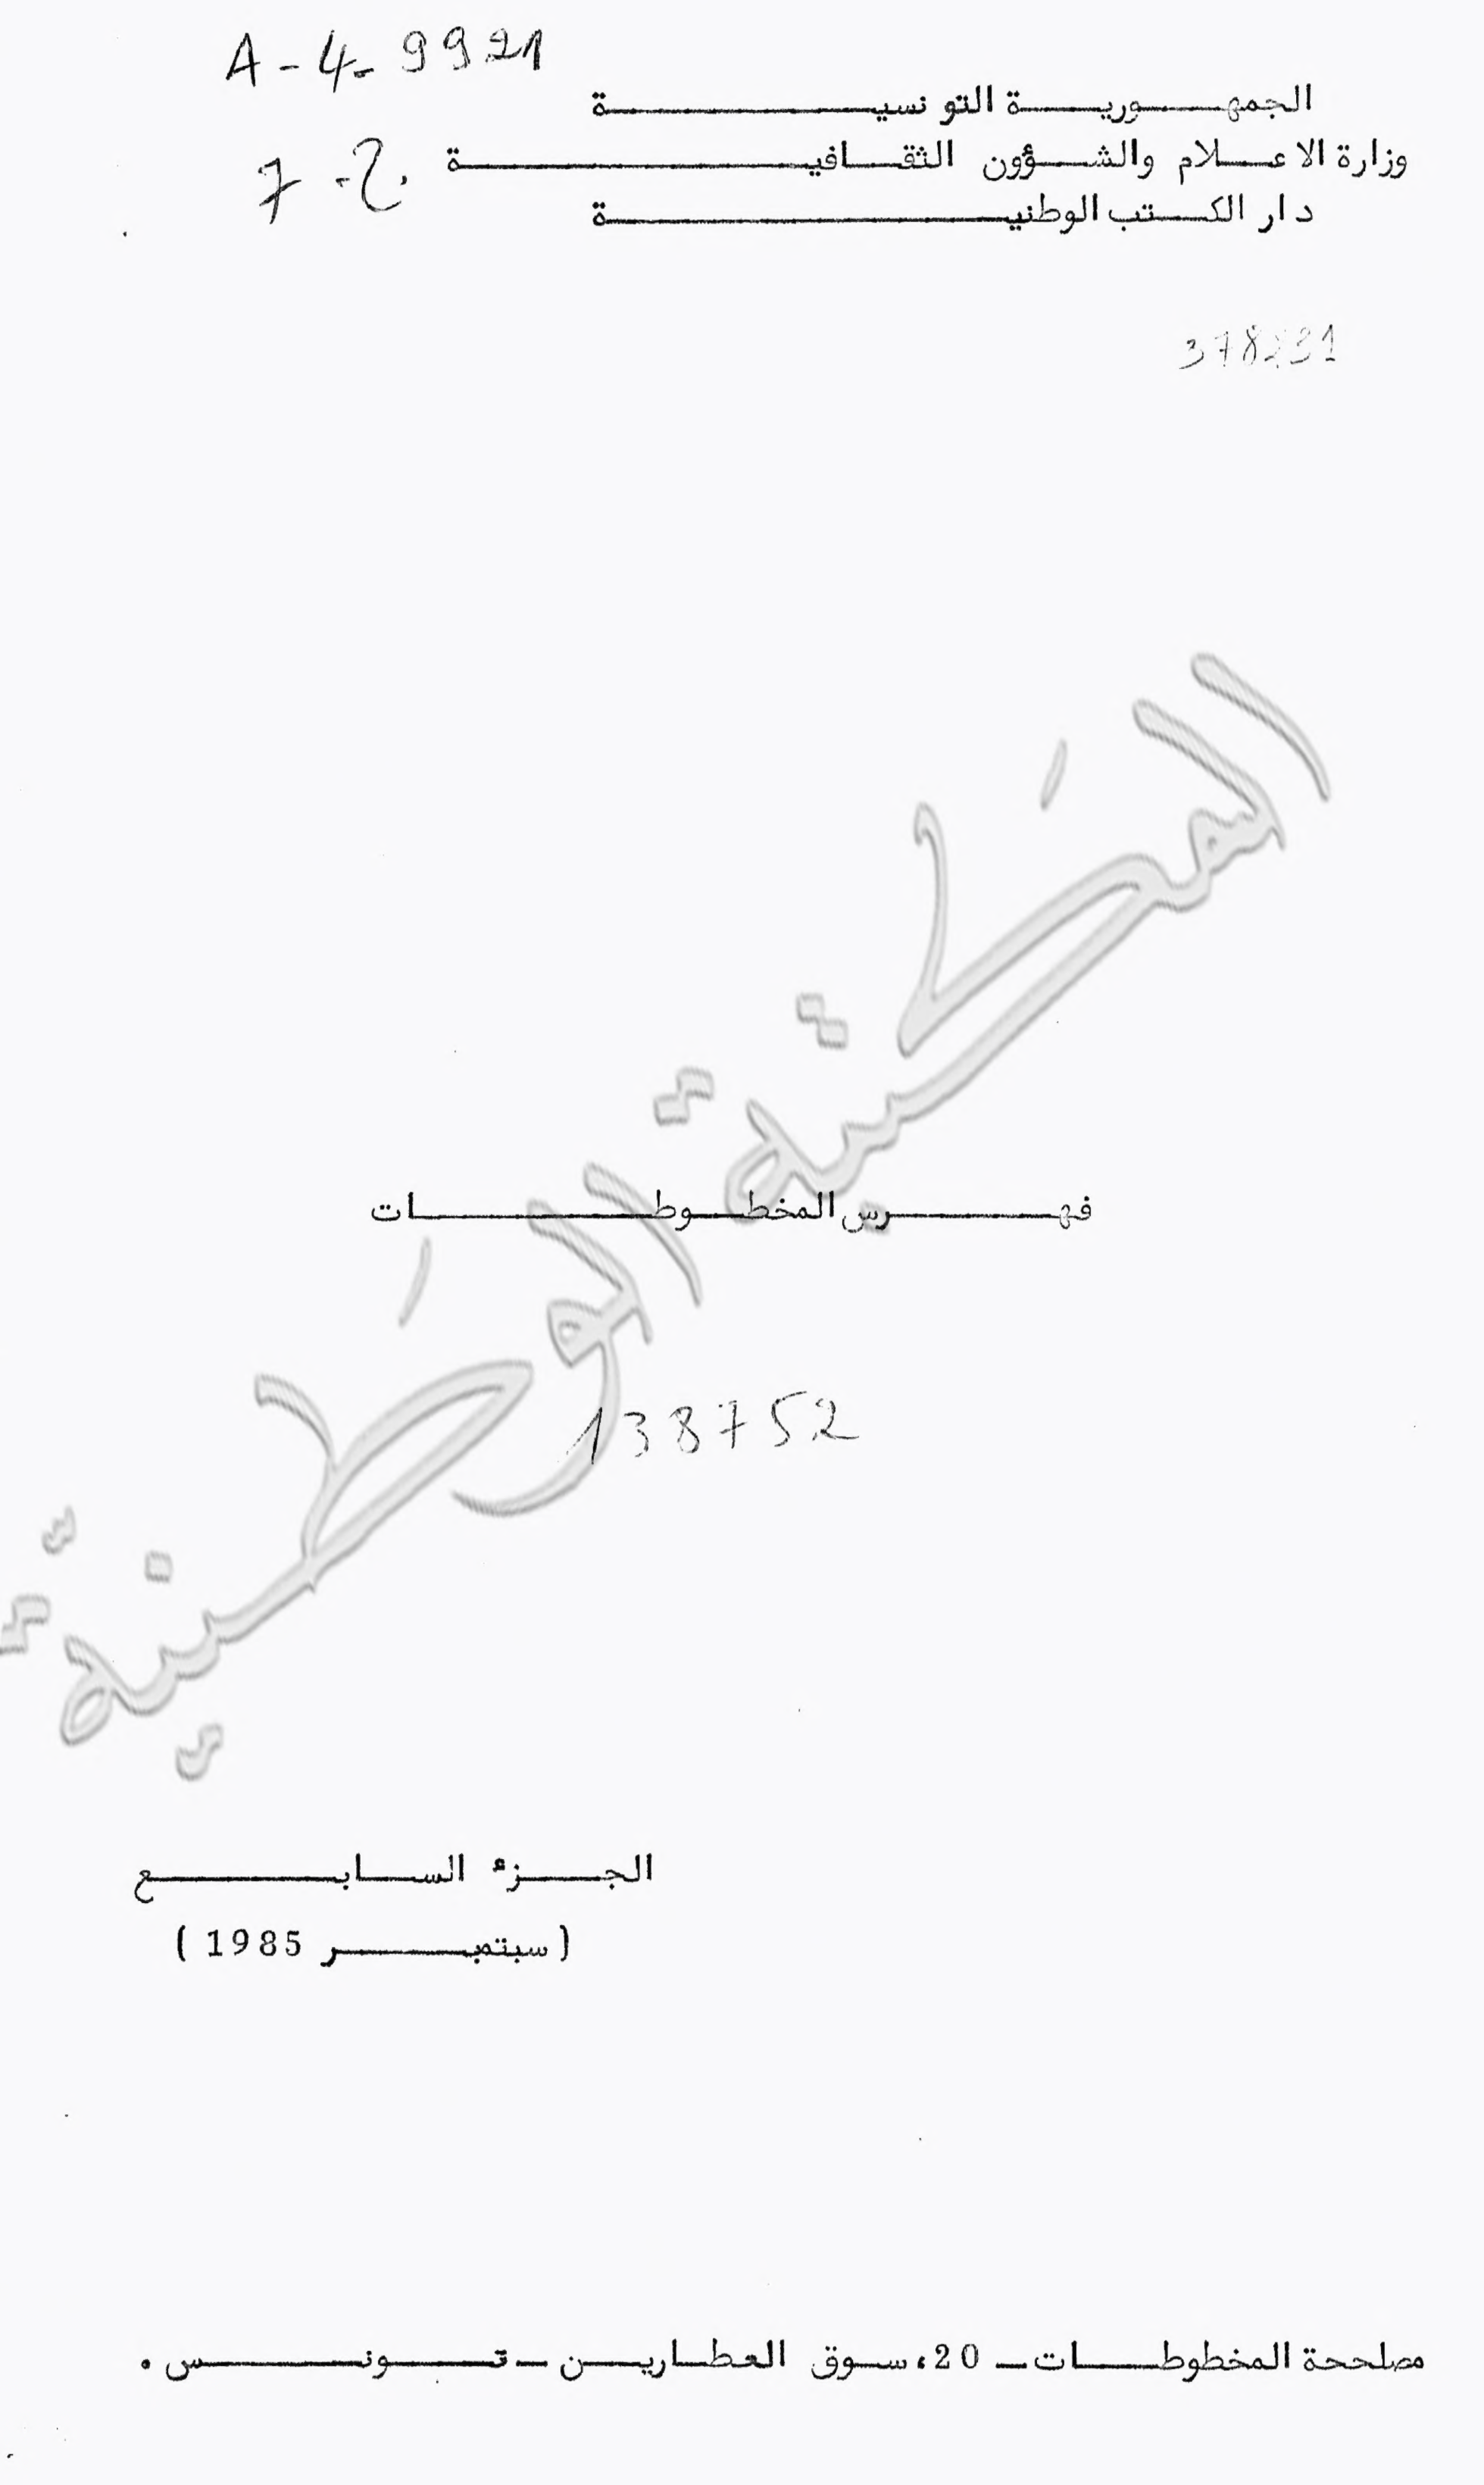 A - 4 - 9921
الجمهورية التونسية
وزارة الاعلام والشؤون الثقافية
ج - 7
دار الكتب الوطنية
المكتبة الوطنية
فهرس المخطوطات
138752
الجزء السابع
( سبتمبر 1985 )
مصلحة المخطوطات - 20، سوق العطارين - تونس .